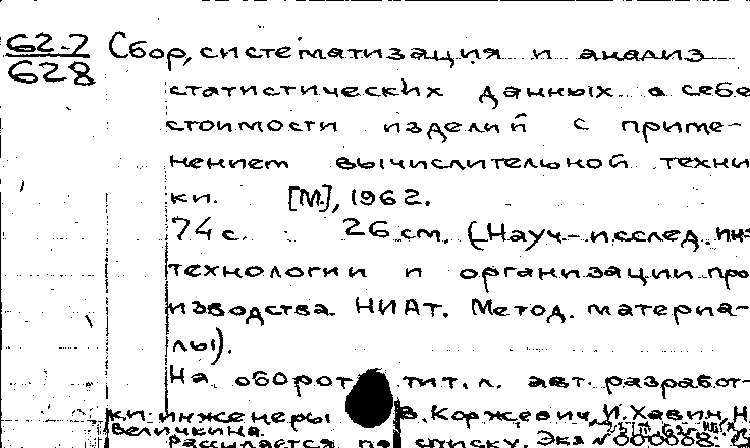 62-7 Сбор, систематизация и анализ
628 статистических данных о себе
стоимости изделий с приме-
нением вычислительной техни
ки. [М.], 1962.
74 с. 26 см. (Науч.-исслед. ин-
технологии и организации про
изводства. НИАТ. Метод. материа-
лы).
На оборот тит. л. авт. разработ-
ки: инженеры В. Коржевич, И. Хавин, Н
Величкина.
Рассылается по списку. Экз №